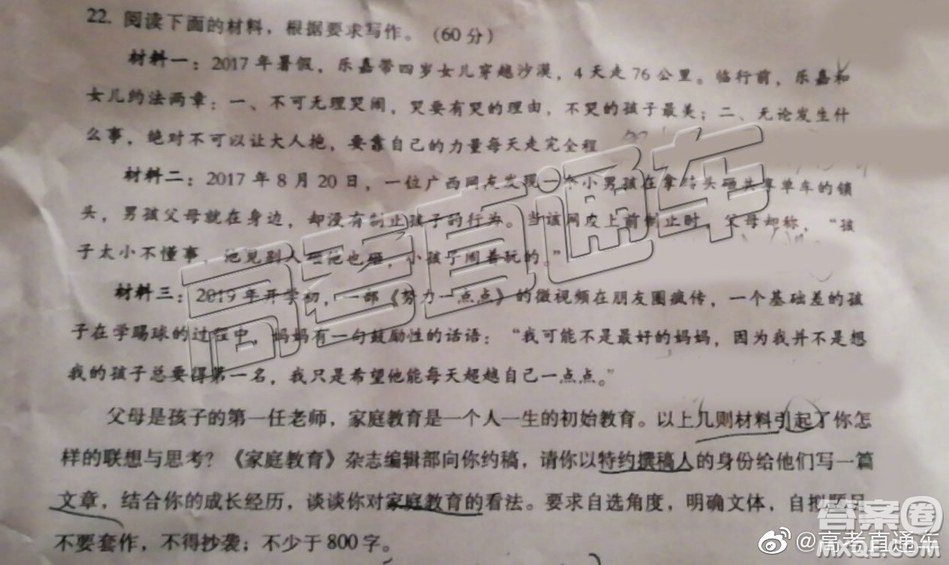 22. 阅读下面的材料，根据要求写作。（60分）
材料一：2017年暑假，乐嘉带四岁女儿穿越沙漠，4天走76公里。临行前，乐嘉和
女儿约法两章：一、不可无理哭闹，哭要有哭的理由，不哭的孩子最美；二、无论发生什
么事，绝对不可以让大人抱，要靠自己的力量每天走完全程
材料二：2017年8月20日，一位广西网友发现一个小男孩在拿砖头砸共享单车的锁
头，男孩父母就在身边，却没有制止孩子的行为。当该网友上前制止时，父母却称，“孩
子太小不懂事，他见别人砸他也砸，小孩子闹着玩的。”
材料三：2019年开学初，一部《努力一点点》的微视频在朋友圈疯传，一个基础差的孩
子在学踢球的过程中，妈妈有一句鼓励性的话语：“我可能不是最好的妈妈，因为我并不是想
我的孩子总要得第一名，我只是希望他能每天超越自己一点点。”
父母是孩子的第一任老师，家庭教育是一个人一生的初始教育。以上几则材料引起了你怎
样的联想与思考？《家庭教育》杂志编辑部向你约稿，请你以特约撰稿人的身份给他们写一篇
文章，结合你的成长经历，谈谈你对家庭教育的看法。要求自选角度，明确文体，自拟题目
不要套作，不得抄袭；不少于800字。
高考直通车
答案圈
MXQE.COM
@高考直通车